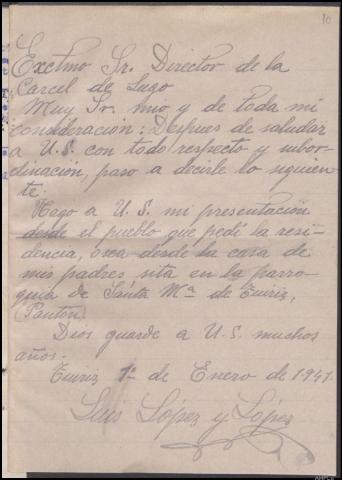 10
Exctmo Sr. Director de la
Carcel de Lugo
Muy Sr. mio y de toda mi
consideración: Despues de saludar
a U.S. con todo respecto y subor-
dinación, paso a decirle lo siguien-
te.
Hago a U.S. mi presentación
desde el pueblo que pedí la resi-
dencia, osea desde la casa de
mis padres sita en la parro-
quia de Santa Mª de Tuiriz,
(Pantón)
Dios guarde a U.S. muchos
años.
Tuiriz 1º de Enero de 1941.
Luis López y López